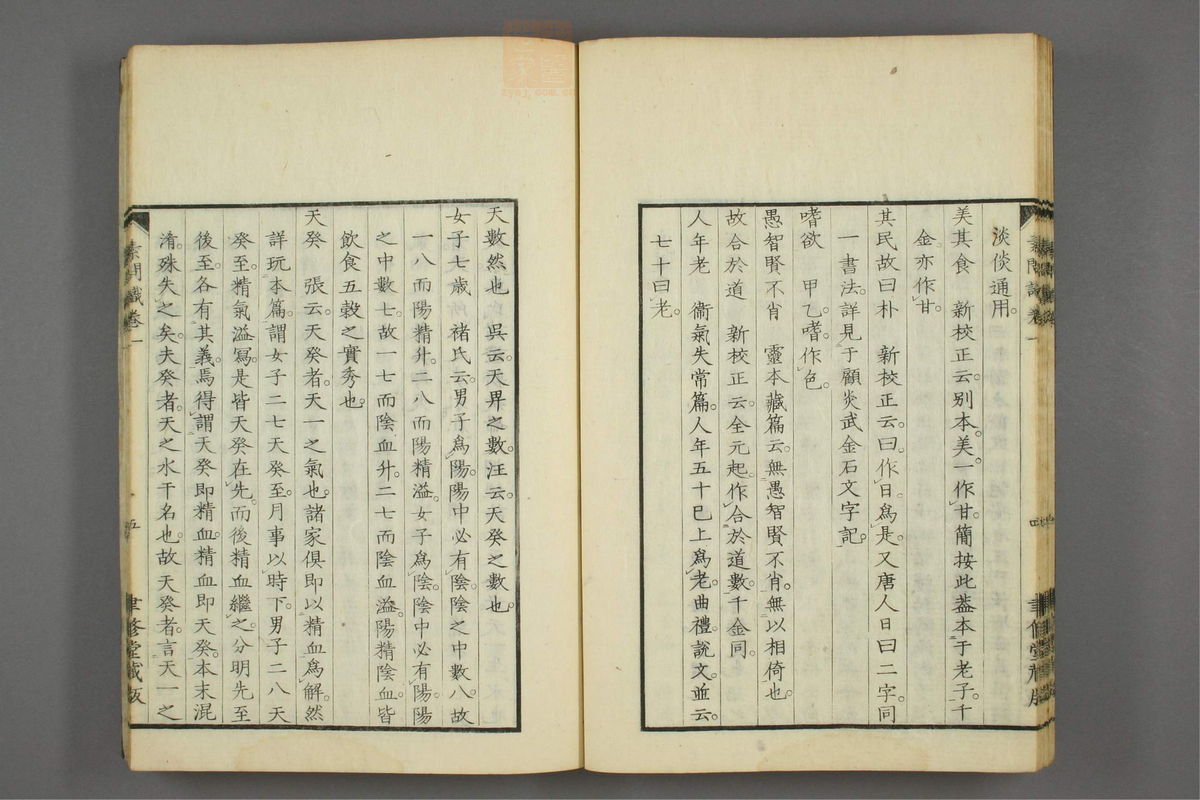 淡倓通用。
美其食　新校正云。別本。美。一作甘。簡按此葢本于老子。千
金亦作甘。
其民故曰朴　新校正云。曰。作日。爲是。又唐人日曰二字同
一書法。詳見于顧炎武金石文字記。
嗜欲　甲乙。嗜。作色。
愚智賢不肖　靈本藏篇云。無愚智賢不肖。無以相倚也。
故合於道　新校正云。全元起。作合於道數。千金同。
人年老　衞氣失常篇。人年五十已上爲老。曲禮。說文。並云。
七十曰老。
素問識卷一
四
聿修堂藏版
天數然也　吳云。天畀之數。汪云。天癸之數也。
女子七歲　褚氏云。男子爲陽。陽中必有陰。陰之中數八。故
一八而陽精升。二八而陽精溢。女子爲陰。陰中必有陽。陽
之中數七。故一七而陰血升。二七而陰血溢。陽精陰血。皆
飲食五穀之實秀也。
天癸　張云。天癸者。天一之氣也。諸家俱即以精血爲解。然
詳玩本篇。謂女子二七天癸至。月事以時下。男子二八天
癸至。精氣溢寫。是皆天癸在先。而後精血繼之。分明先至
後至。各有其義。焉得謂天癸即精血。精血即天癸。本末混
淆。殊失之矣。夫癸者。天之水干名也。故天癸者。言天一之
素問識卷一
五
聿修堂藏版